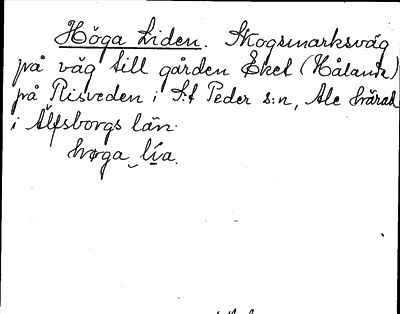 Höga Liden. Skogsmarksväg
på väg till gården Ekel (Håland)
på Risveden i S:t Peder s:n, Ale härad
i Älfsborgs län.
høga lía.